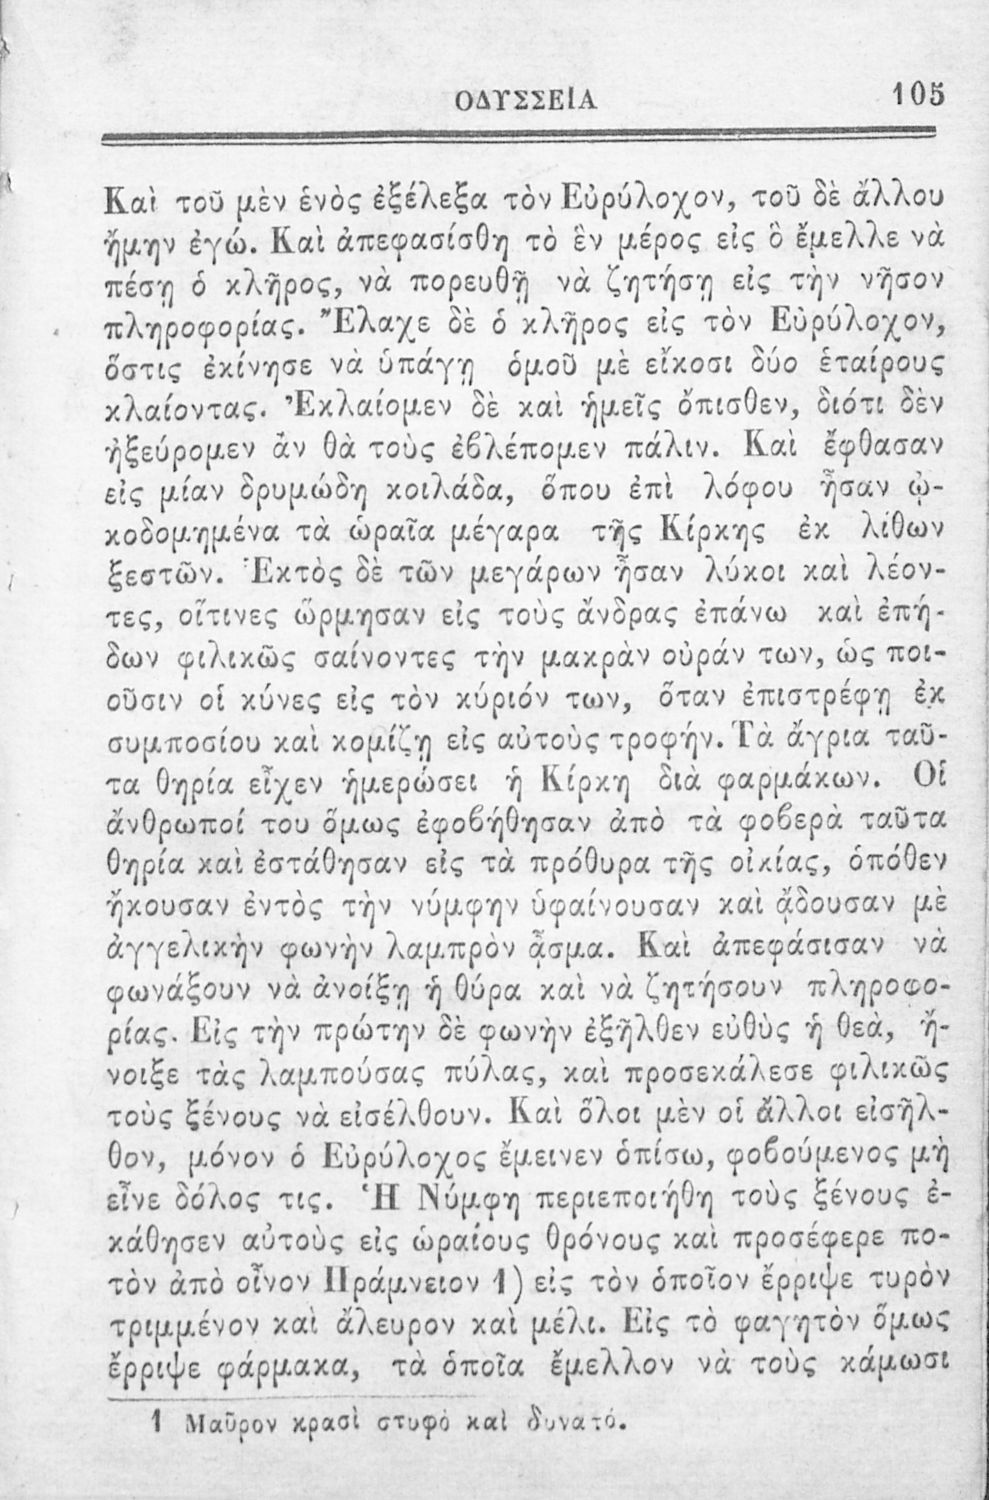 ΟΔΥΣΣΕΙΑ 105
Καὶ τοῦ μὲν ἑνὸς ἐξέλεξα τὸν Εὐρύλοχον, τοῦ δὲ ἄλλου
ἤμην ἐγώ. Καὶ ἀπεφασίσθη τὸ ἓν μέρος εἰς ὃ ἔμελλε νὰ
πέσῃ ὁ κλῆρος, νὰ πορευθῇ νὰ ζητήσῃ εἰς τὴν νῆσον
πληροφορίας. Ἔλαχε δὲ ὁ κλῆρος εἰς τὸν Εὐρύλοχον,
ὅστις ἐκίνησε νὰ ὑπάγῃ ὁμοῦ μὲ εἴκοσι δύο ἑταίρους
κλαίοντας. Ἐκλαίομεν δὲ καὶ ἡμεῖς ὄπισθεν, διότι δὲν
ἠξεύρομεν ἂν θὰ τοὺς ἐβλέπομεν πάλιν. Καὶ ἔφθασαν
εἰς μίαν δρυμώδη κοιλάδα, ὅπου ἐπὶ λόφου ἦσαν ᾠ-
κοδομημένα τὰ ὡραῖα μέγαρα τῆς Κίρκης ἐκ λίθων
ξεστῶν. Ἐκτὸς δὲ τῶν μεγάρων ἦσαν λύκοι καὶ λέον-
τες, οἵτινες ὥρμησαν εἰς τοὺς ἄνδρας ἐπάνω καὶ ἐπή-
δων φιλικῶς σαίνοντες τὴν μακρὰν οὐράν των, ὡς ποι-
οῦσιν οἱ κύνες εἰς τὸν κύριόν των, ὅταν ἐπιστρέφῃ ἐκ
συμποσίου καὶ κομίζῃ εἰς αὐτοὺς τροφήν. Τὰ ἄγρια ταῦ-
τα θηρία εἶχεν ἡμερώσει ἡ Κίρκη διὰ φαρμάκων. Οἱ
ἄνθρωποί του ὅμως ἐφοβήθησαν ἀπὸ τὰ φοβερὰ ταῦτα
θηρία καὶ ἐστάθησαν εἰς τὰ πρόθυρα τῆς οἰκίας, ὁπόθεν
ἤκουσαν ἐντὸς τὴν νύμφην ὑφαίνουσαν καὶ ᾄδουσαν μὲ
ἀγγελικὴν φωνὴν λαμπρὸν ᾆσμα. Καὶ ἀπεφάσισαν νὰ
φωνάξουν νὰ ἀνοίξῃ ἡ θύρα καὶ νὰ ζητήσουν πληροφο-
ρίας. Εἰς τὴν πρώτην δὲ φωνὴν ἐξῆλθεν εὐθὺς ἡ θεὰ, ἤ-
νοιξε τὰς λαμπούσας πύλας, καὶ προσεκάλεσε φιλικῶς
τοὺς ξένους νὰ εἰσέλθουν. Καὶ ὅλοι μὲν οἱ ἄλλοι εἰσῆλ-
θον, μόνον ὁ Εὐρύλοχος ἔμεινεν ὀπίσω, φοβούμενος μὴ
εἶνε δόλος τις. Ἡ Νύμφη περιεποιήθη τοὺς ξένους ἐ-
κάθησεν αὐτοὺς εἰς ὡραίους θρόνους καὶ προσέφερε πο-
τὸν ἀπὸ οἶνον Πράμνειον 1) εἰς τὸν ὁποῖον ἔρριψε τυρὸν
τριμμένον καὶ ἄλευρον καὶ μέλι. Εἰς τὸ φαγητὸν ὅμως
ἔρριψε φάρμακα, τὰ ὁποῖα ἔμελλον νὰ τοὺς κάμωσι
1 Μαῦρον κρασὶ στυφὸ καὶ δυνατό.